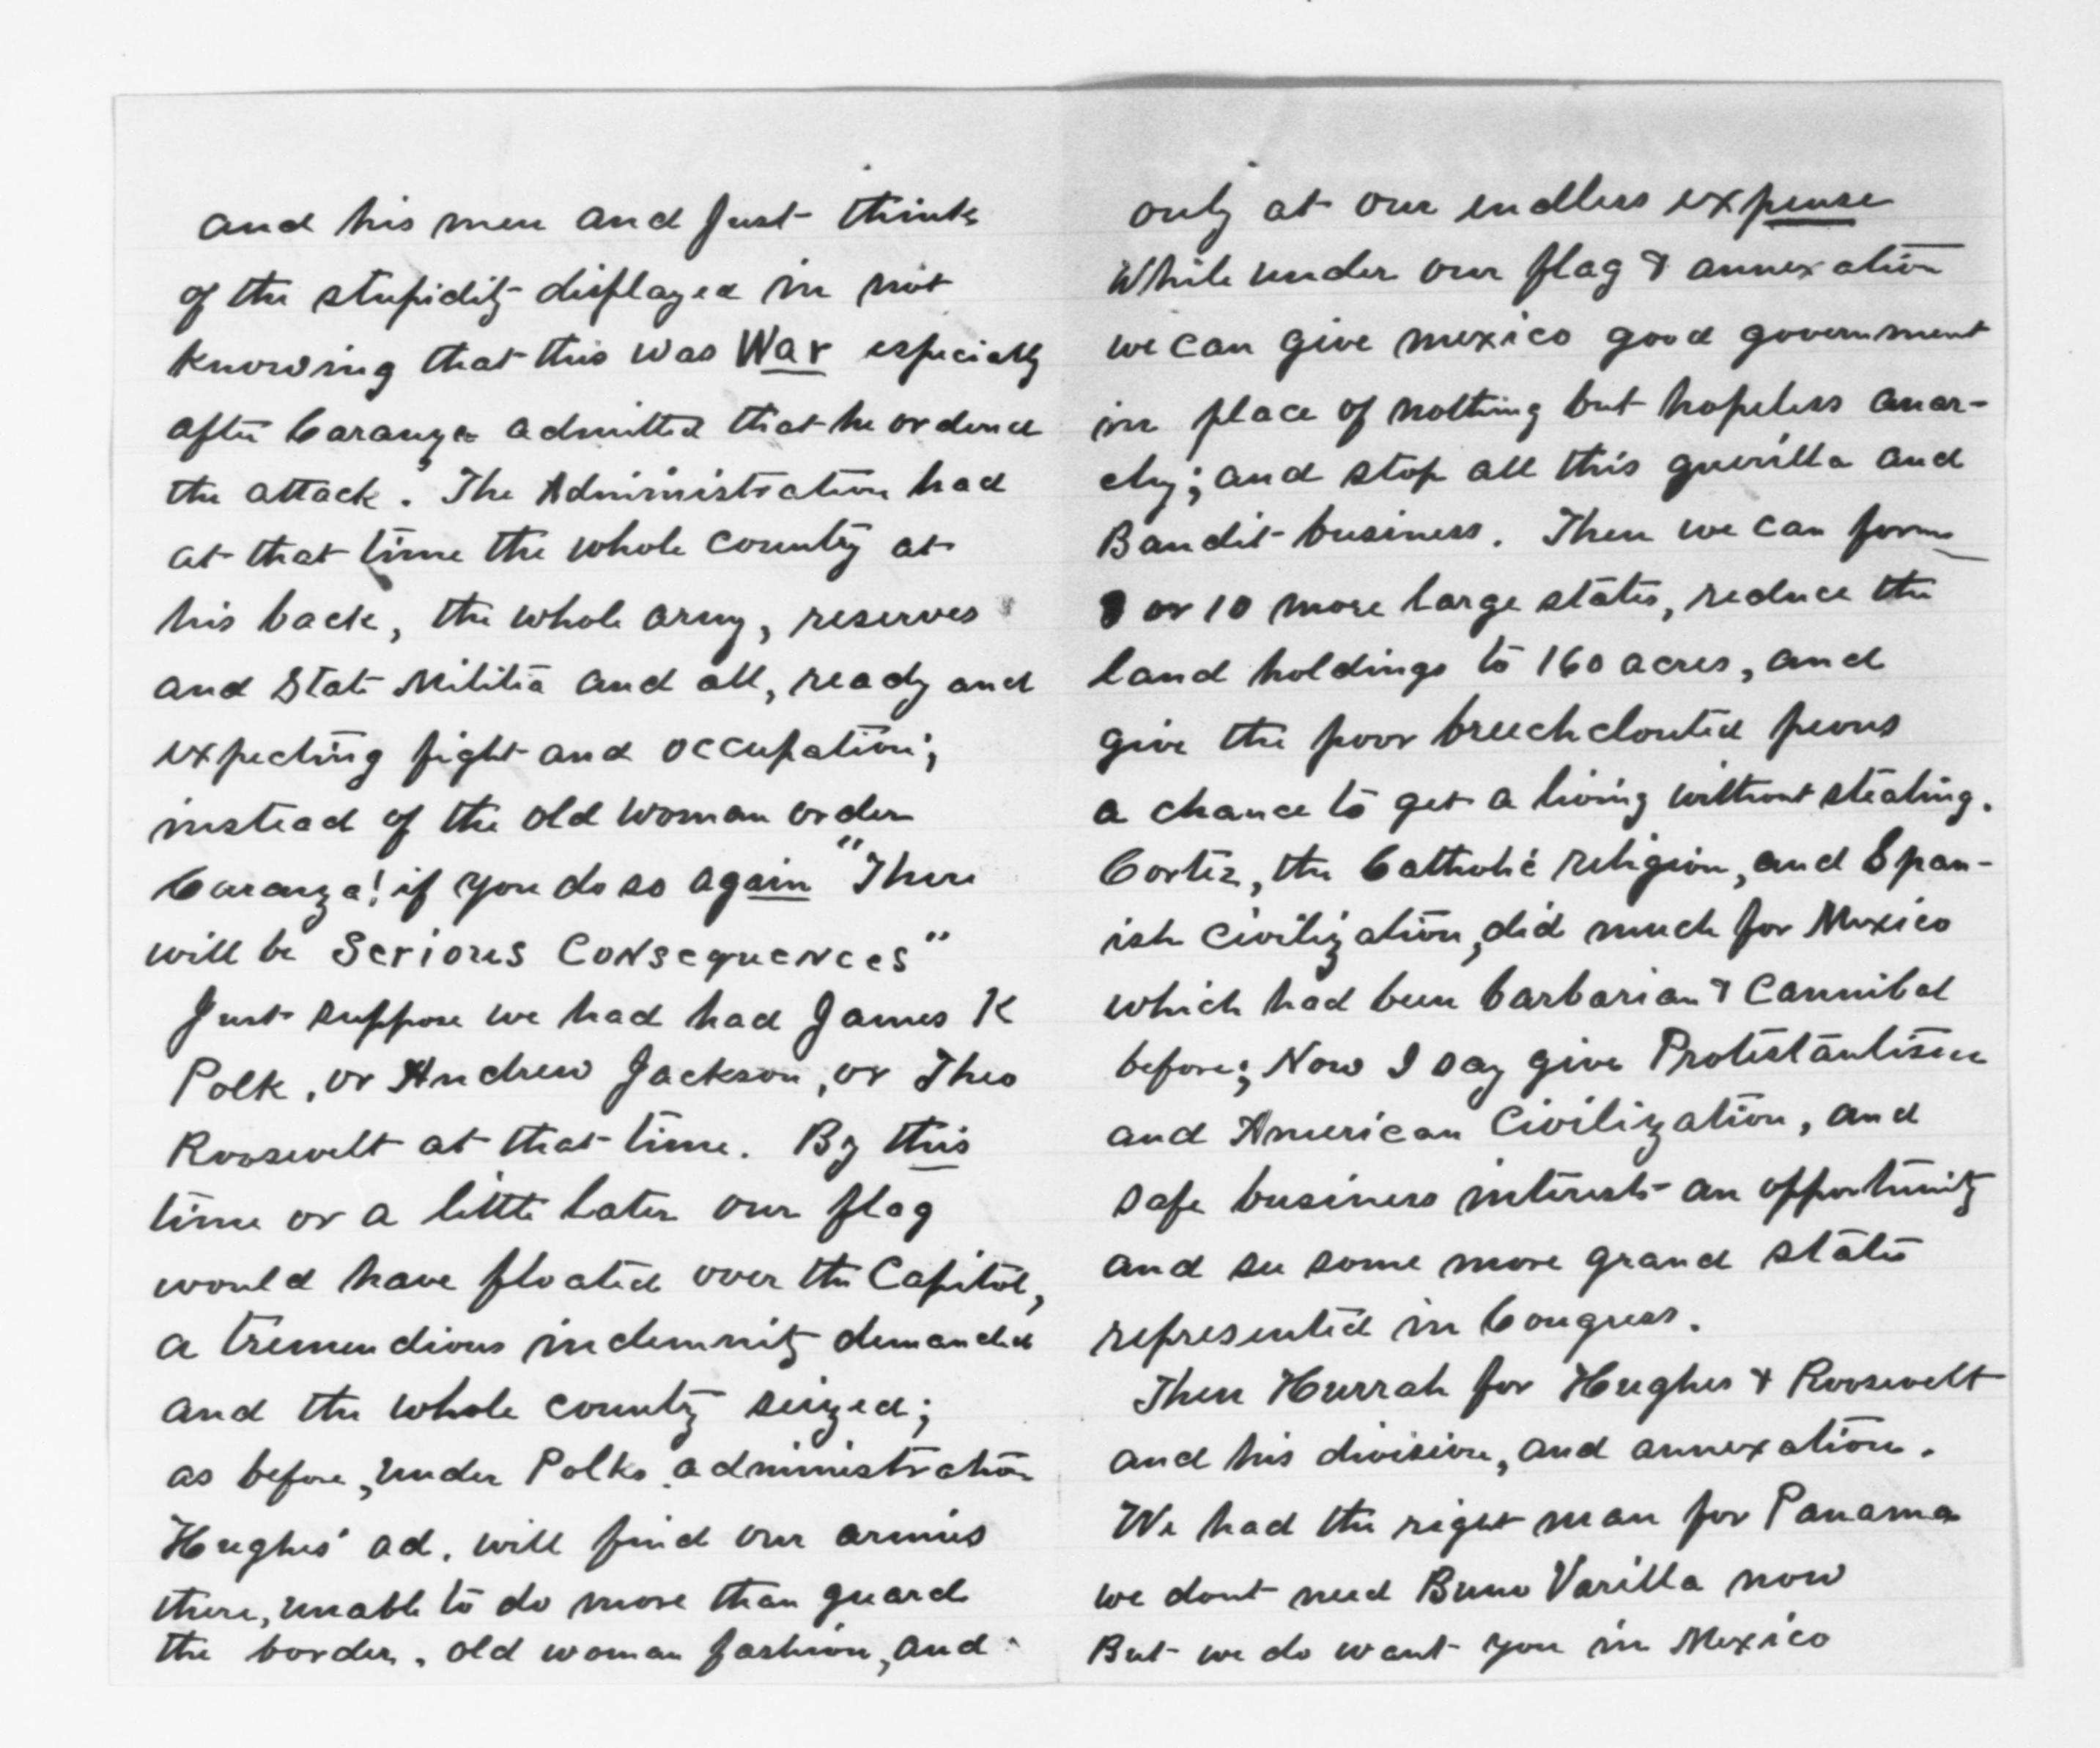 and his men and Just think
of the stupidity displayed in not
knowing that this was War especially
after Caranza admitted that he ordered
the attack. The Administration had
at that time the whole country at
his back, the whole army, reserves
and State Militia and all, ready and
expecting fight and occupation;
instead of the old woman order
Caranza! if you do so again "There
will be Serious Consequences"
Just suppose we had had James K
Polk, or Andrew Jackson, or Theo
Roosevelt at that time. By this
time or a little later our flag
would have floated over the Capitol,
a tremendious indemnity demanded
and the whole country seized;
as before, under Polks administration
Hughes' ad. will find our armies
there, unable to do more than guard
the border, old woman fashion, and
only at our endless expense
While under our flag & annexation
we can give mexico good government
in place of nothing but hopeless anar-
chy; and stop all this guerilla and
Bandit business. Then we can form
or 10 more large states, reduce the
land holdings to 160 acres, and
give the poor breechclouted peons
a chance to get a living without stealing.
Cortez, the Catholic religion, and Span-
ish Civilization, did much for Mexico
which had been barbarian & Cannibal
before; Now I say give Protestantism
and American Civilization, and
safe business interests an opportunity
and see some more grand states
represented in Congress.
Then Hurrah for Hughes & Roosevelt
and his division, and annexation.
We had the right man for Panama
we dont need Buno Varilla now
But we do want you in Mexico